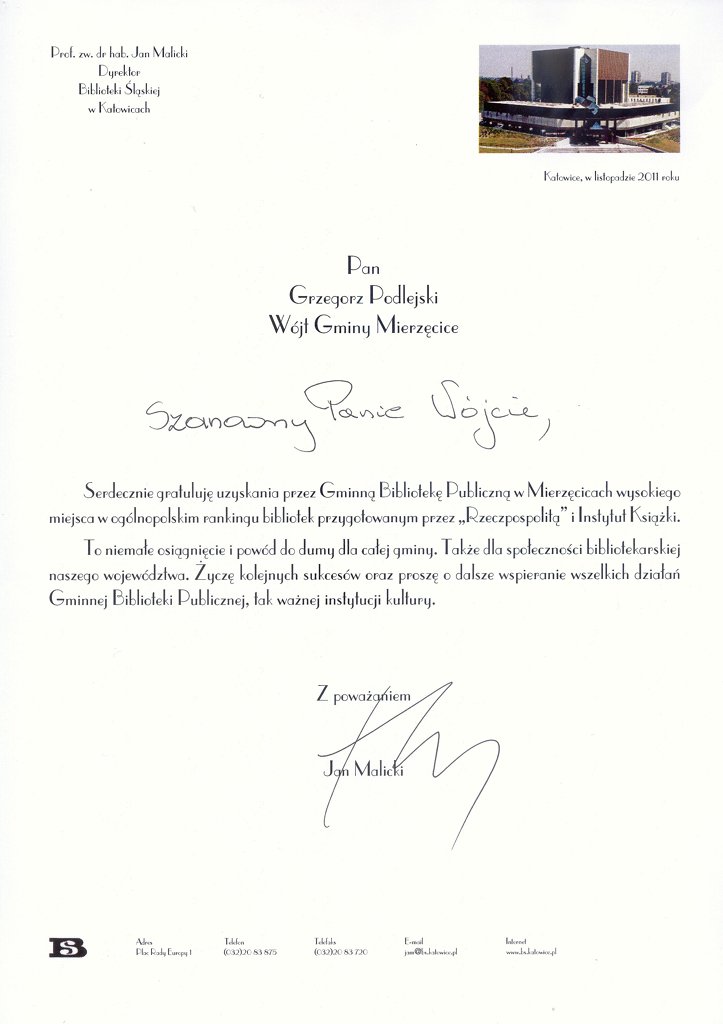 Prof. zw. dr hab. Jan Malicki
Dyrektor
Biblioteki Śląskiej
w Katowicach
Katowice, w listopadzie 2011 roku
Pan
Grzegorz Podlejski
Wójt Gminy Mierzęcice
Szanowny Panie Wójcie,
Serdecznie gratuluję uzyskania przez Gminną Bibliotekę Publiczną w Mierzęcicach wysokiego
miejsca w ogólnopolskim rankingu bibliotek przygotowanym przez „Rzeczpospolitą” i Instytut Książki.
To niemałe osiągnięcie i powód do dumy dla całej gminy. Także dla społeczności bibliotekarskiej
naszego województwa. Życzę kolejnych sukcesów oraz proszę o dalsze wspieranie wszelkich działań
Gminnej Biblioteki Publicznej, tak ważnej instytucji kultury.
Z poważaniem
Jan Malicki
BS
Adres Telefon Telefaks E-mail Internet
Plac Rady Europy 1 (032)20 83 875 (032)20 83 720 jam@bs.katowice.pl www.bs.katowice.pl